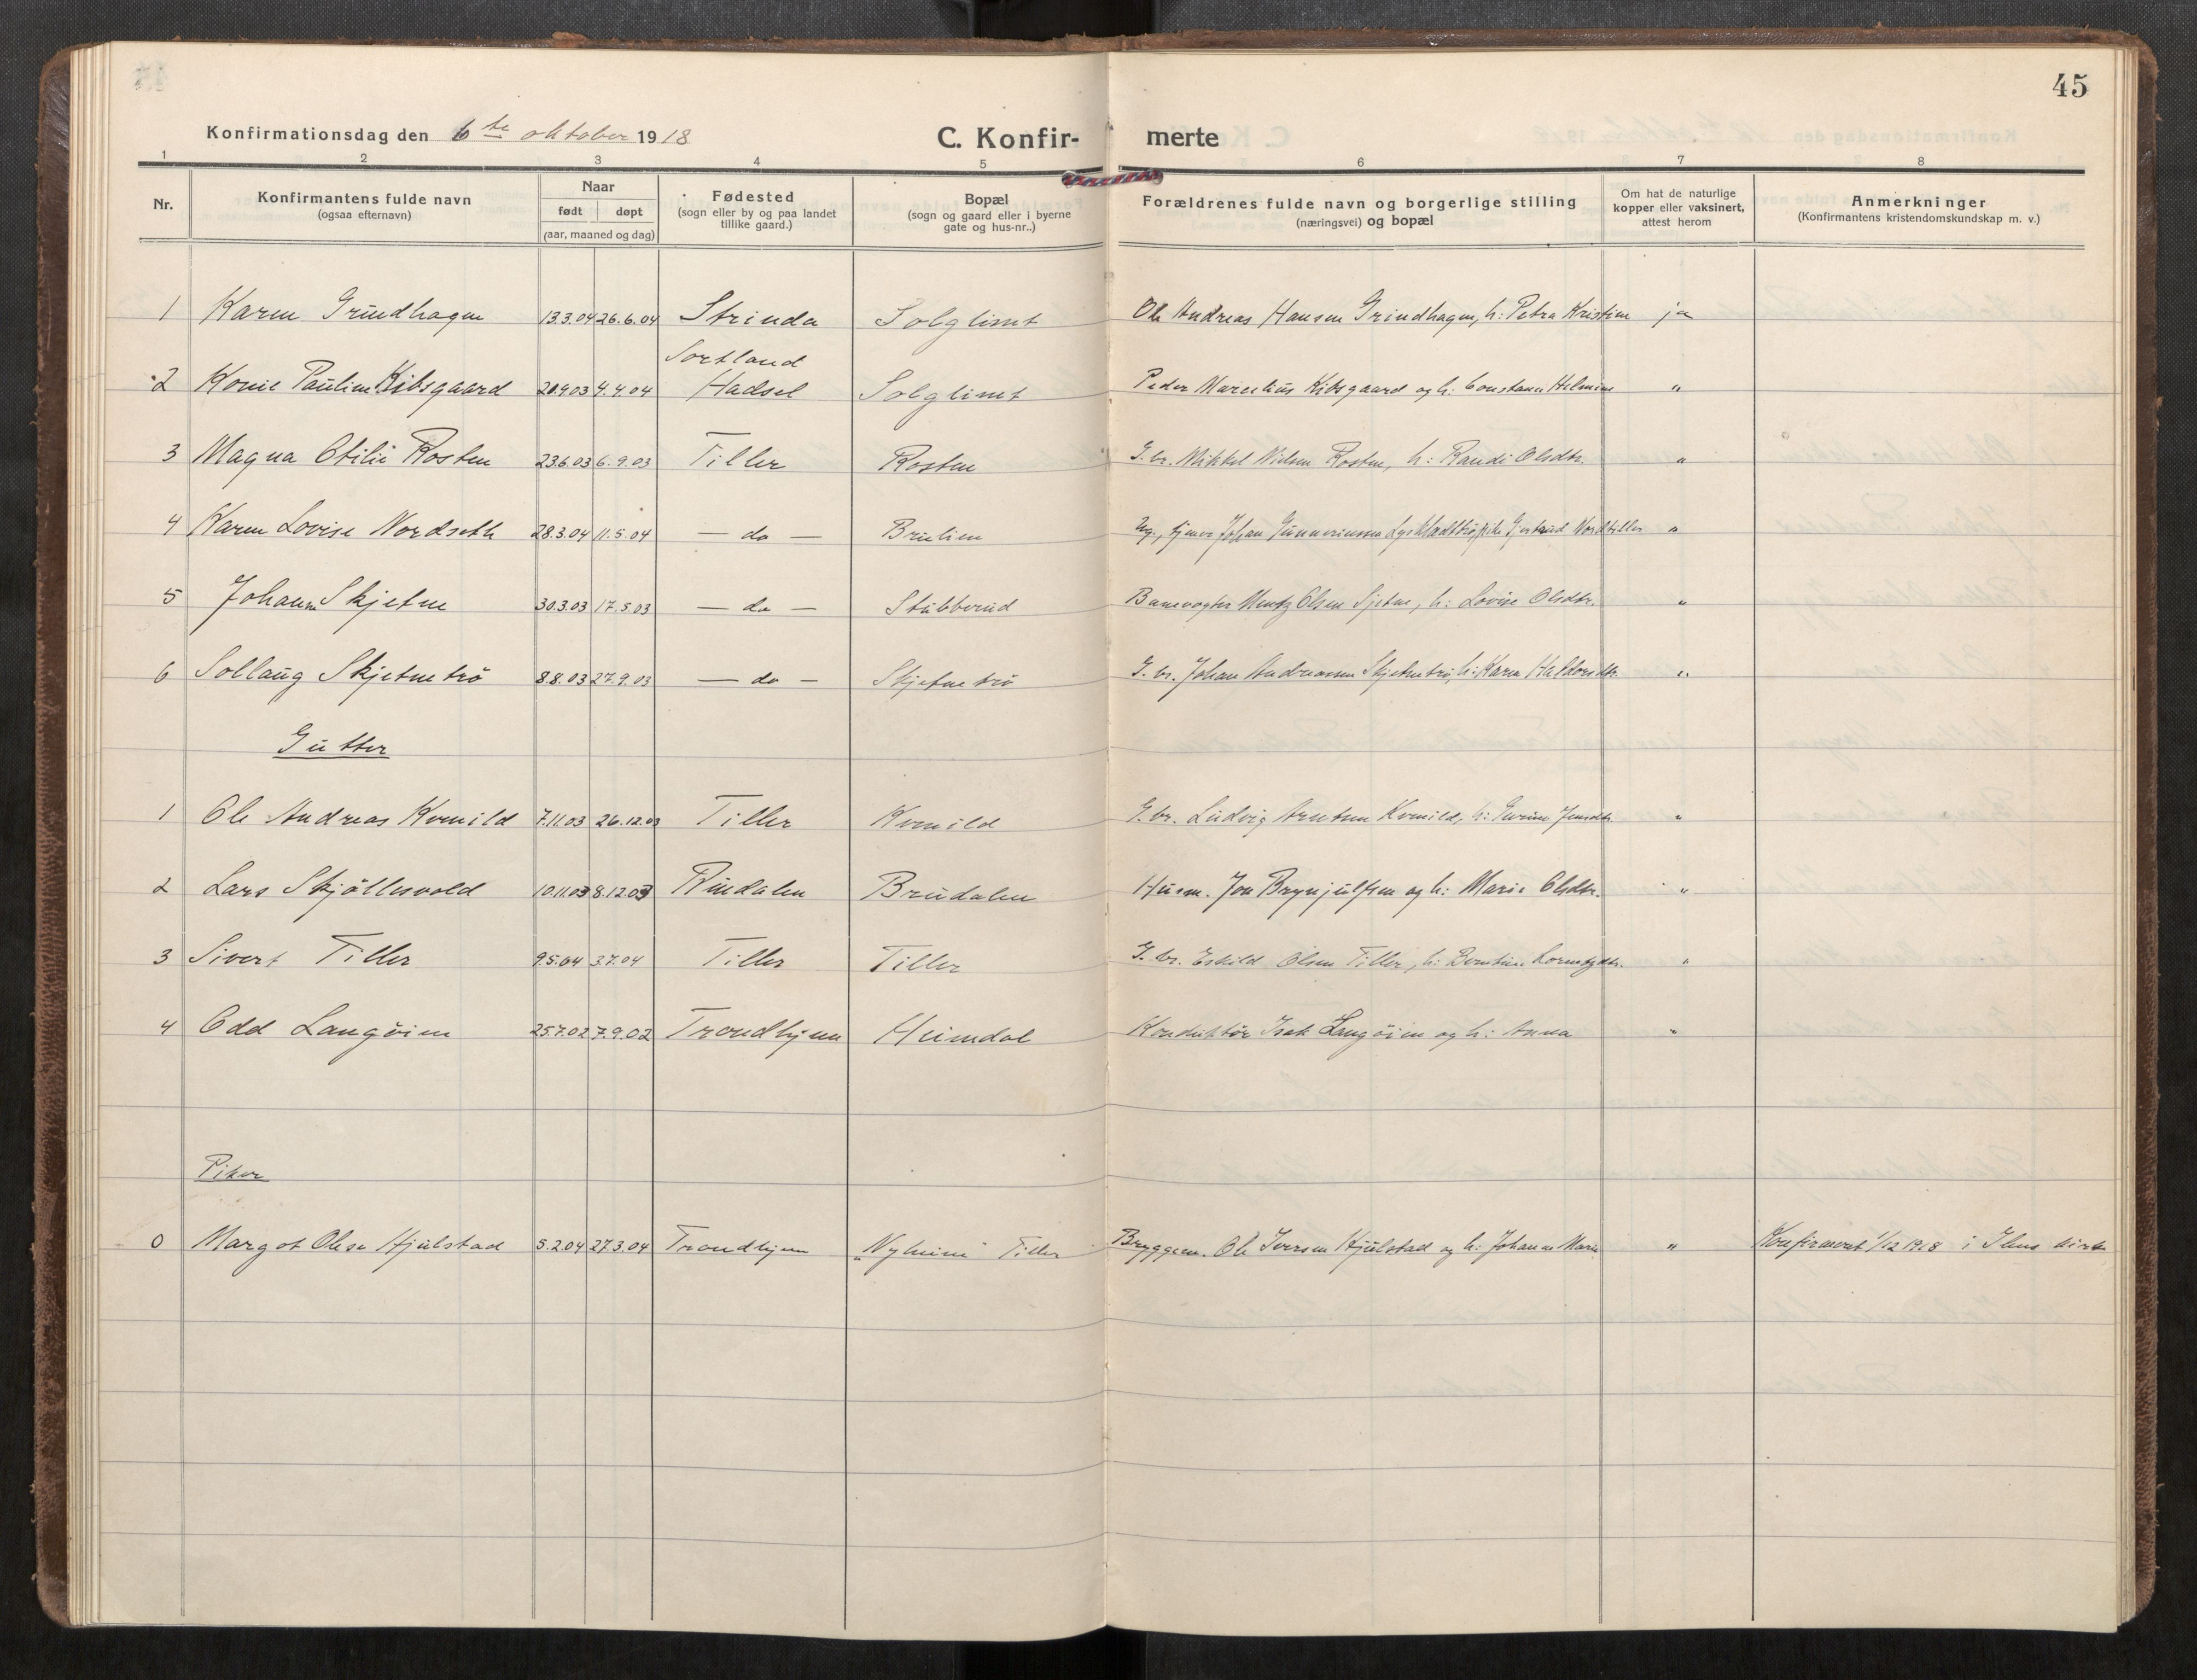 45
Konfirmationsdag den 6te oktober 1918 C. Konfir- merte
1 2 3 4 5 6 7 8
Nr. Konfirmantens fulde navn (ogsaa efternavn) Naar født døpt (aar, maaned og dag) Fødested (sogn eller by og paa landet tillike gaard.) Bopæl (sogn og gaard eller i byerne gate og hus-nr..) Forældrenes fulde navn og borgerlige stilling (næringsvei) og bopæl Om hat de naturlige kopper eller vaksinert, attest herom Anmerkninger (Konfirmantens kristendomskundskap m. v.)
1 Karen Grindhagen 13.3.04 26.6.04 Strinda Solglimt Ole Andreas Hansen Grindhagen, h: Petra Kristine ja
2 Konie Pauline Kibsgaard 20.9.03 4.4.04 Sortland Hadsel Solglimt Peder Marcelius Kibsgaard og h: Constanse Helmine "
3 Magna Otilie Rosten 23.6.03 6.9.03 Tiller Rosten G.br. Mikkel Nielsen Rosten, h: Randi Olsdtr. "
4 Karen Lovise Nordseth 28.3.04 11.5.04 — do — Brulien Ug., tjener Johan Gunneriussen Gjertrud Nordtiller "
5 Johanne Skjetne 30.3.03 17.5.03 — do — Stubberud Banevogter Mentz Olsen Sjetne, h: Lovise Olsdtr. "
6 Sollaug Skjetnetrø 8.8.03 27.9.03 — do — Skjetnetrø G.br. Johan Andreassen Skjetnetrø, h: Karen Haldorsdtr. "
Gutter
1 Ole Andreas Kvenild 7.11.03 26.12.03 Tiller Kvenild G.br. Ludvig Arntsen Kvenild, h: Gurine Jensdtr. "
2 Lars Skjöllesvold 10.11.03 8.12.03 Rindalen Brudalen Husm. Jon Brynjulfsen og h: Marie Olsdtr. "
3 Sivert Tiller 9.5.04 3.7.04 Tiller Tiller G.br. Eskild Olsen Tiller, h: Berntine Lorentzdtr. "
4 Odd Langöien 25.7.02 7.9.02 Trondhjem Heimdal Konduktör Isak Langöien og h: Anna "
Piker
0 Margot Olese Hjulstad 5.2.04 27.3.04 Trondhjem "Nyheim" Tiller Bryggem. Ole Iversen Hjulstad og h: Johanne Marie " Konfirmert 1/12 1918 i Ilens kirke